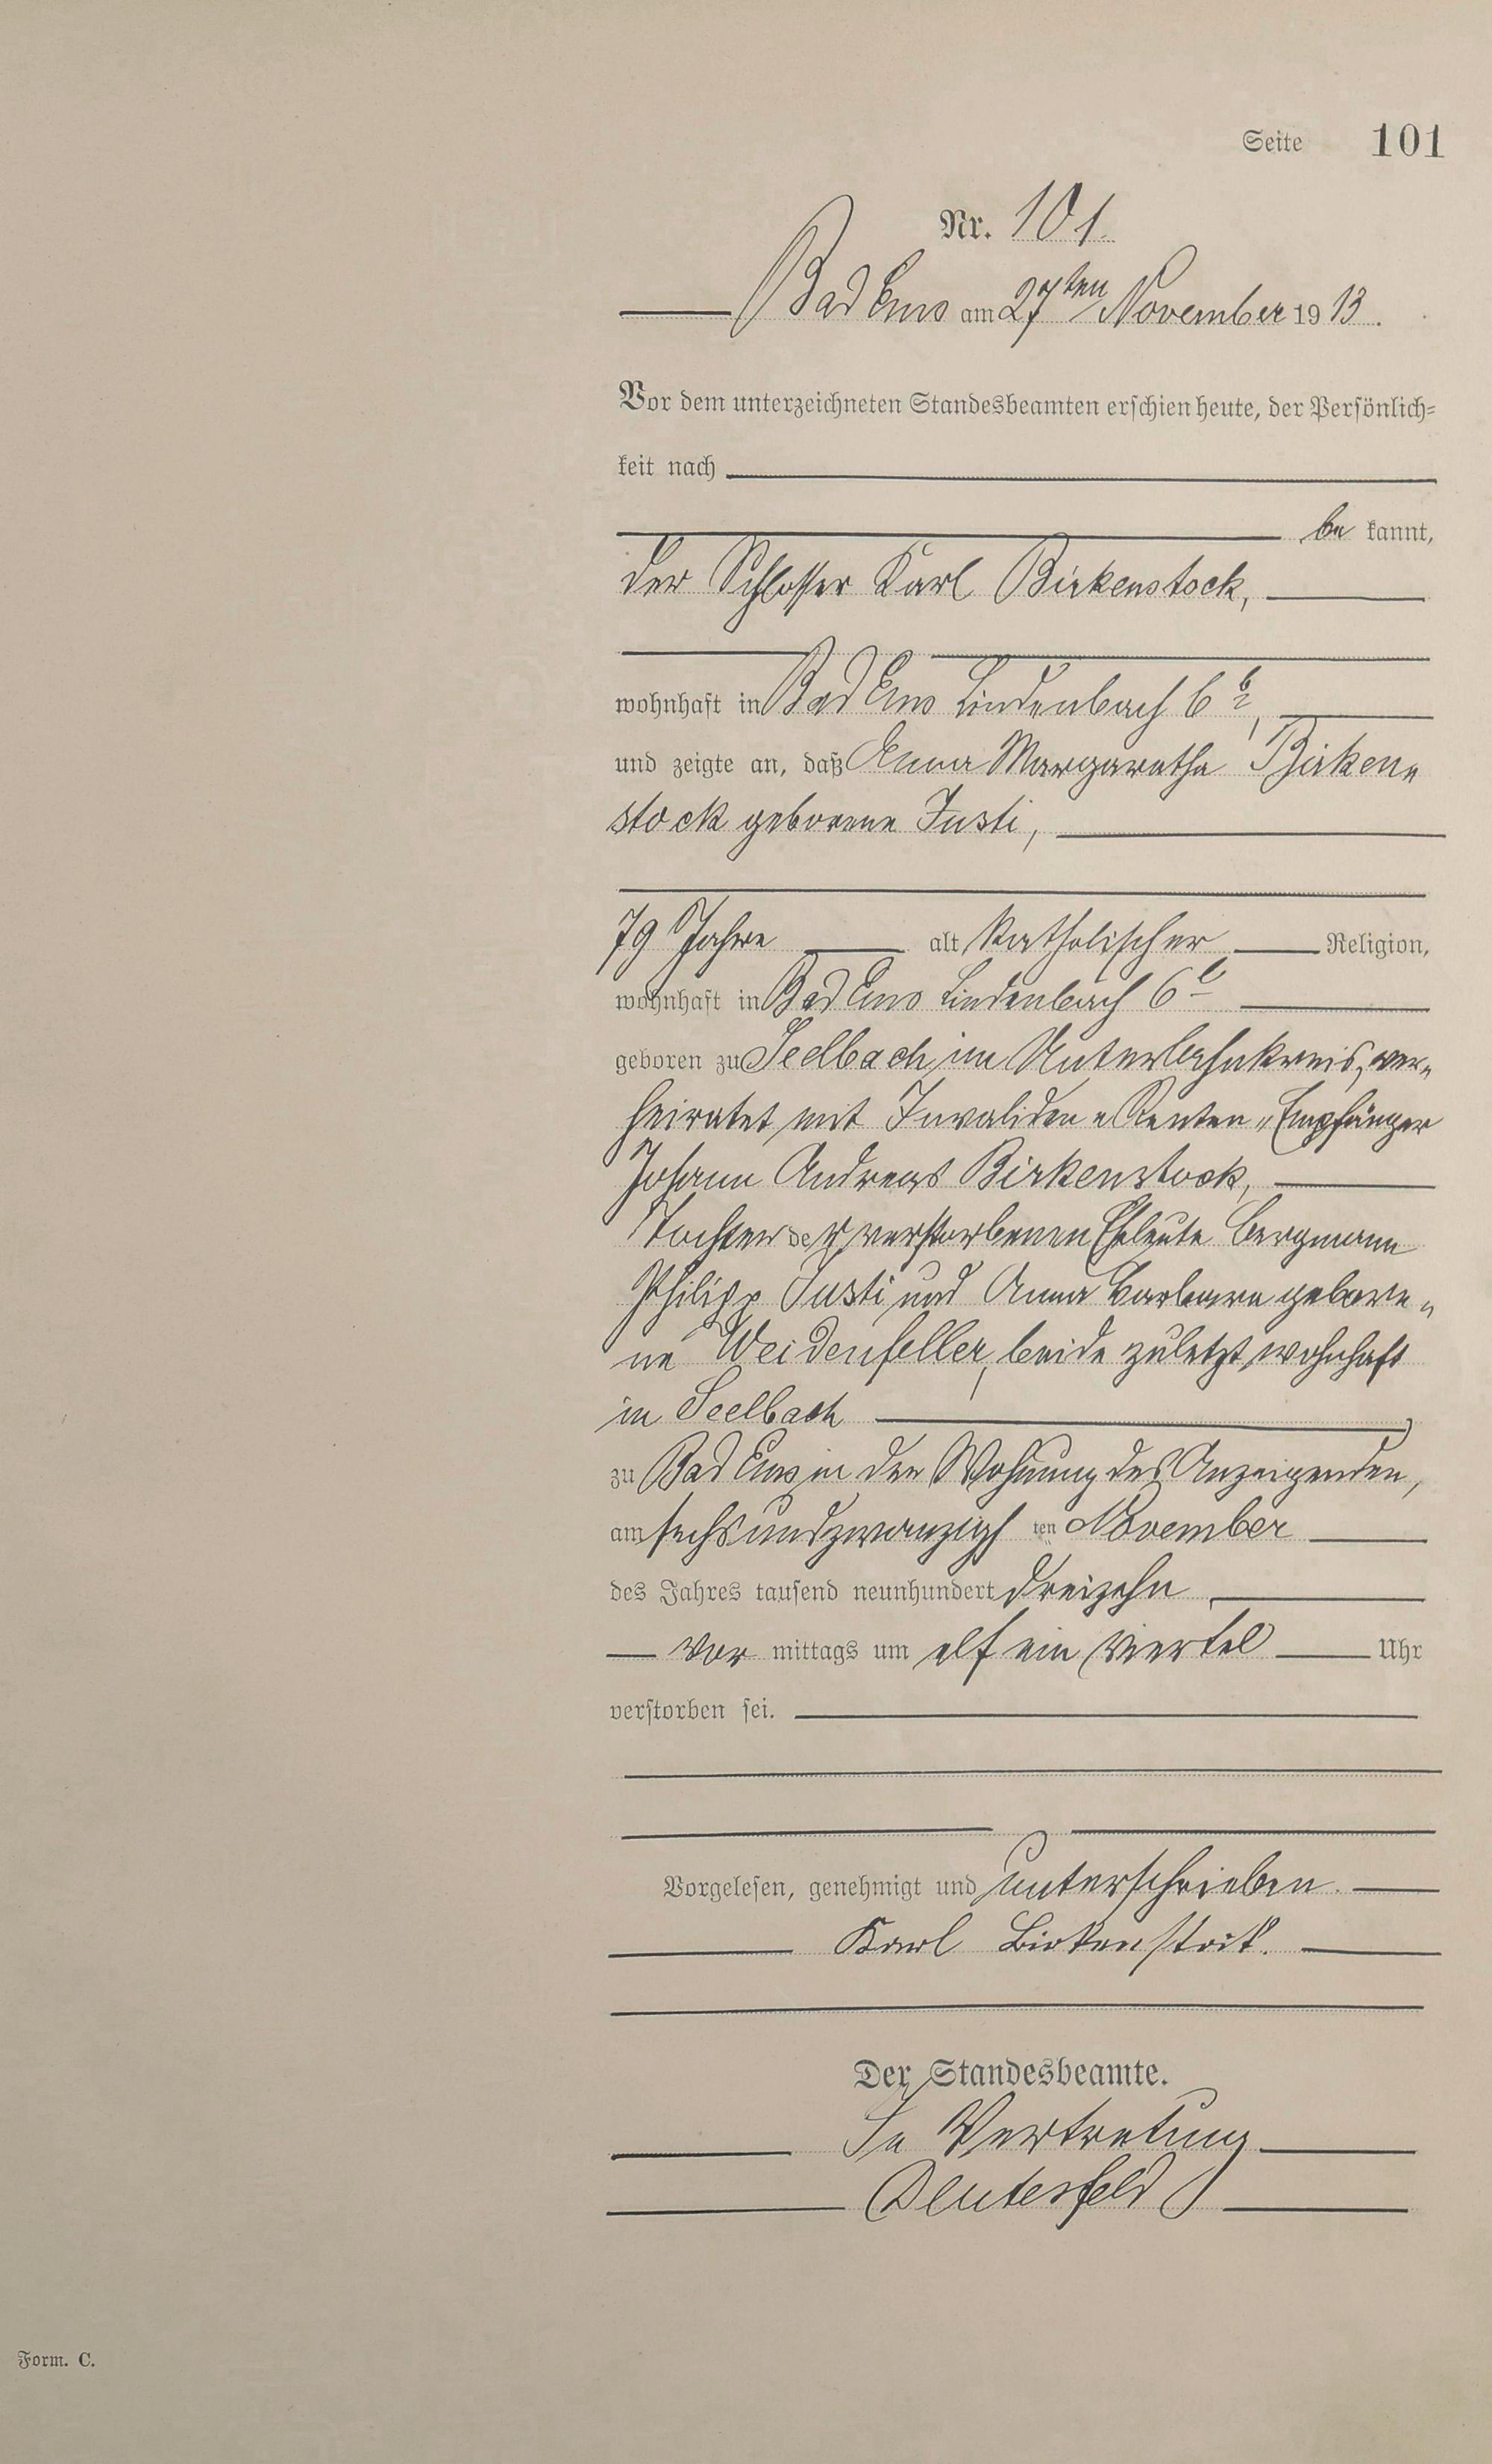 Seite 101
Nr. 101.
Bad Ems am 27ten November 1913.
Vor dem unterzeichneten Standesbeamten erschien heute, der Persönlich=
keit nach
be kannt,
der Schlosser Karl Birkenstock,
wohnhaft in Bad Ems Lindenbach 6 b,
und zeigte an, daß Anna Margaretha Birken„
stock geborene Justi,
79 Jahre alt katholischer Religion,
wohnhaft in Bad Ems Lindenbach 6 b
geboren zu Seelbach im Unterlahnkreis, ver„
heiratet mit Invaliden„Renten„Empfänger
Johann Andreas Birkenstock,
Tochter der verstorbenen Eheleute Bergmann
Philipp Justi und Anna Barbara gebore„
ne Weidenfeller, beide zuletzt wohnhaft
in Seelbach,
zu Bad Ems in der Wohnung des Anzeigenden,
am sechsundzwanzigsten November
des Jahres tausend neunhundert dreizehn,
vor mittags um elf ein viertel Uhr
verstorben sei.
Vorgelesen, genehmigt und unterschrieben.
Karl Birkenstock.
Der Standesbeamte.
In Vertretung
Form. C.